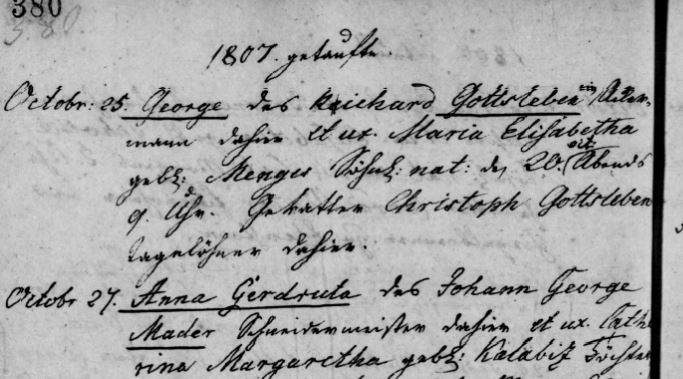 380
380.
1807. getaufte.
Octobr: 25. George des Richard Gottsleben ein Acker-
mann dahier et ux. Maria Elisabetha
gebh: Menges Söhnl: nat: d 20. eit: Abends
9. Uhr. Gevatter Christoph Gottsleben
tagelöhner dahier.
Octobr 27. Anna Gerdruta des Johann George
Mader Schneidermeister dahier et ux. Cathe
rina Margaretha gebh: Kalabiz Töchter